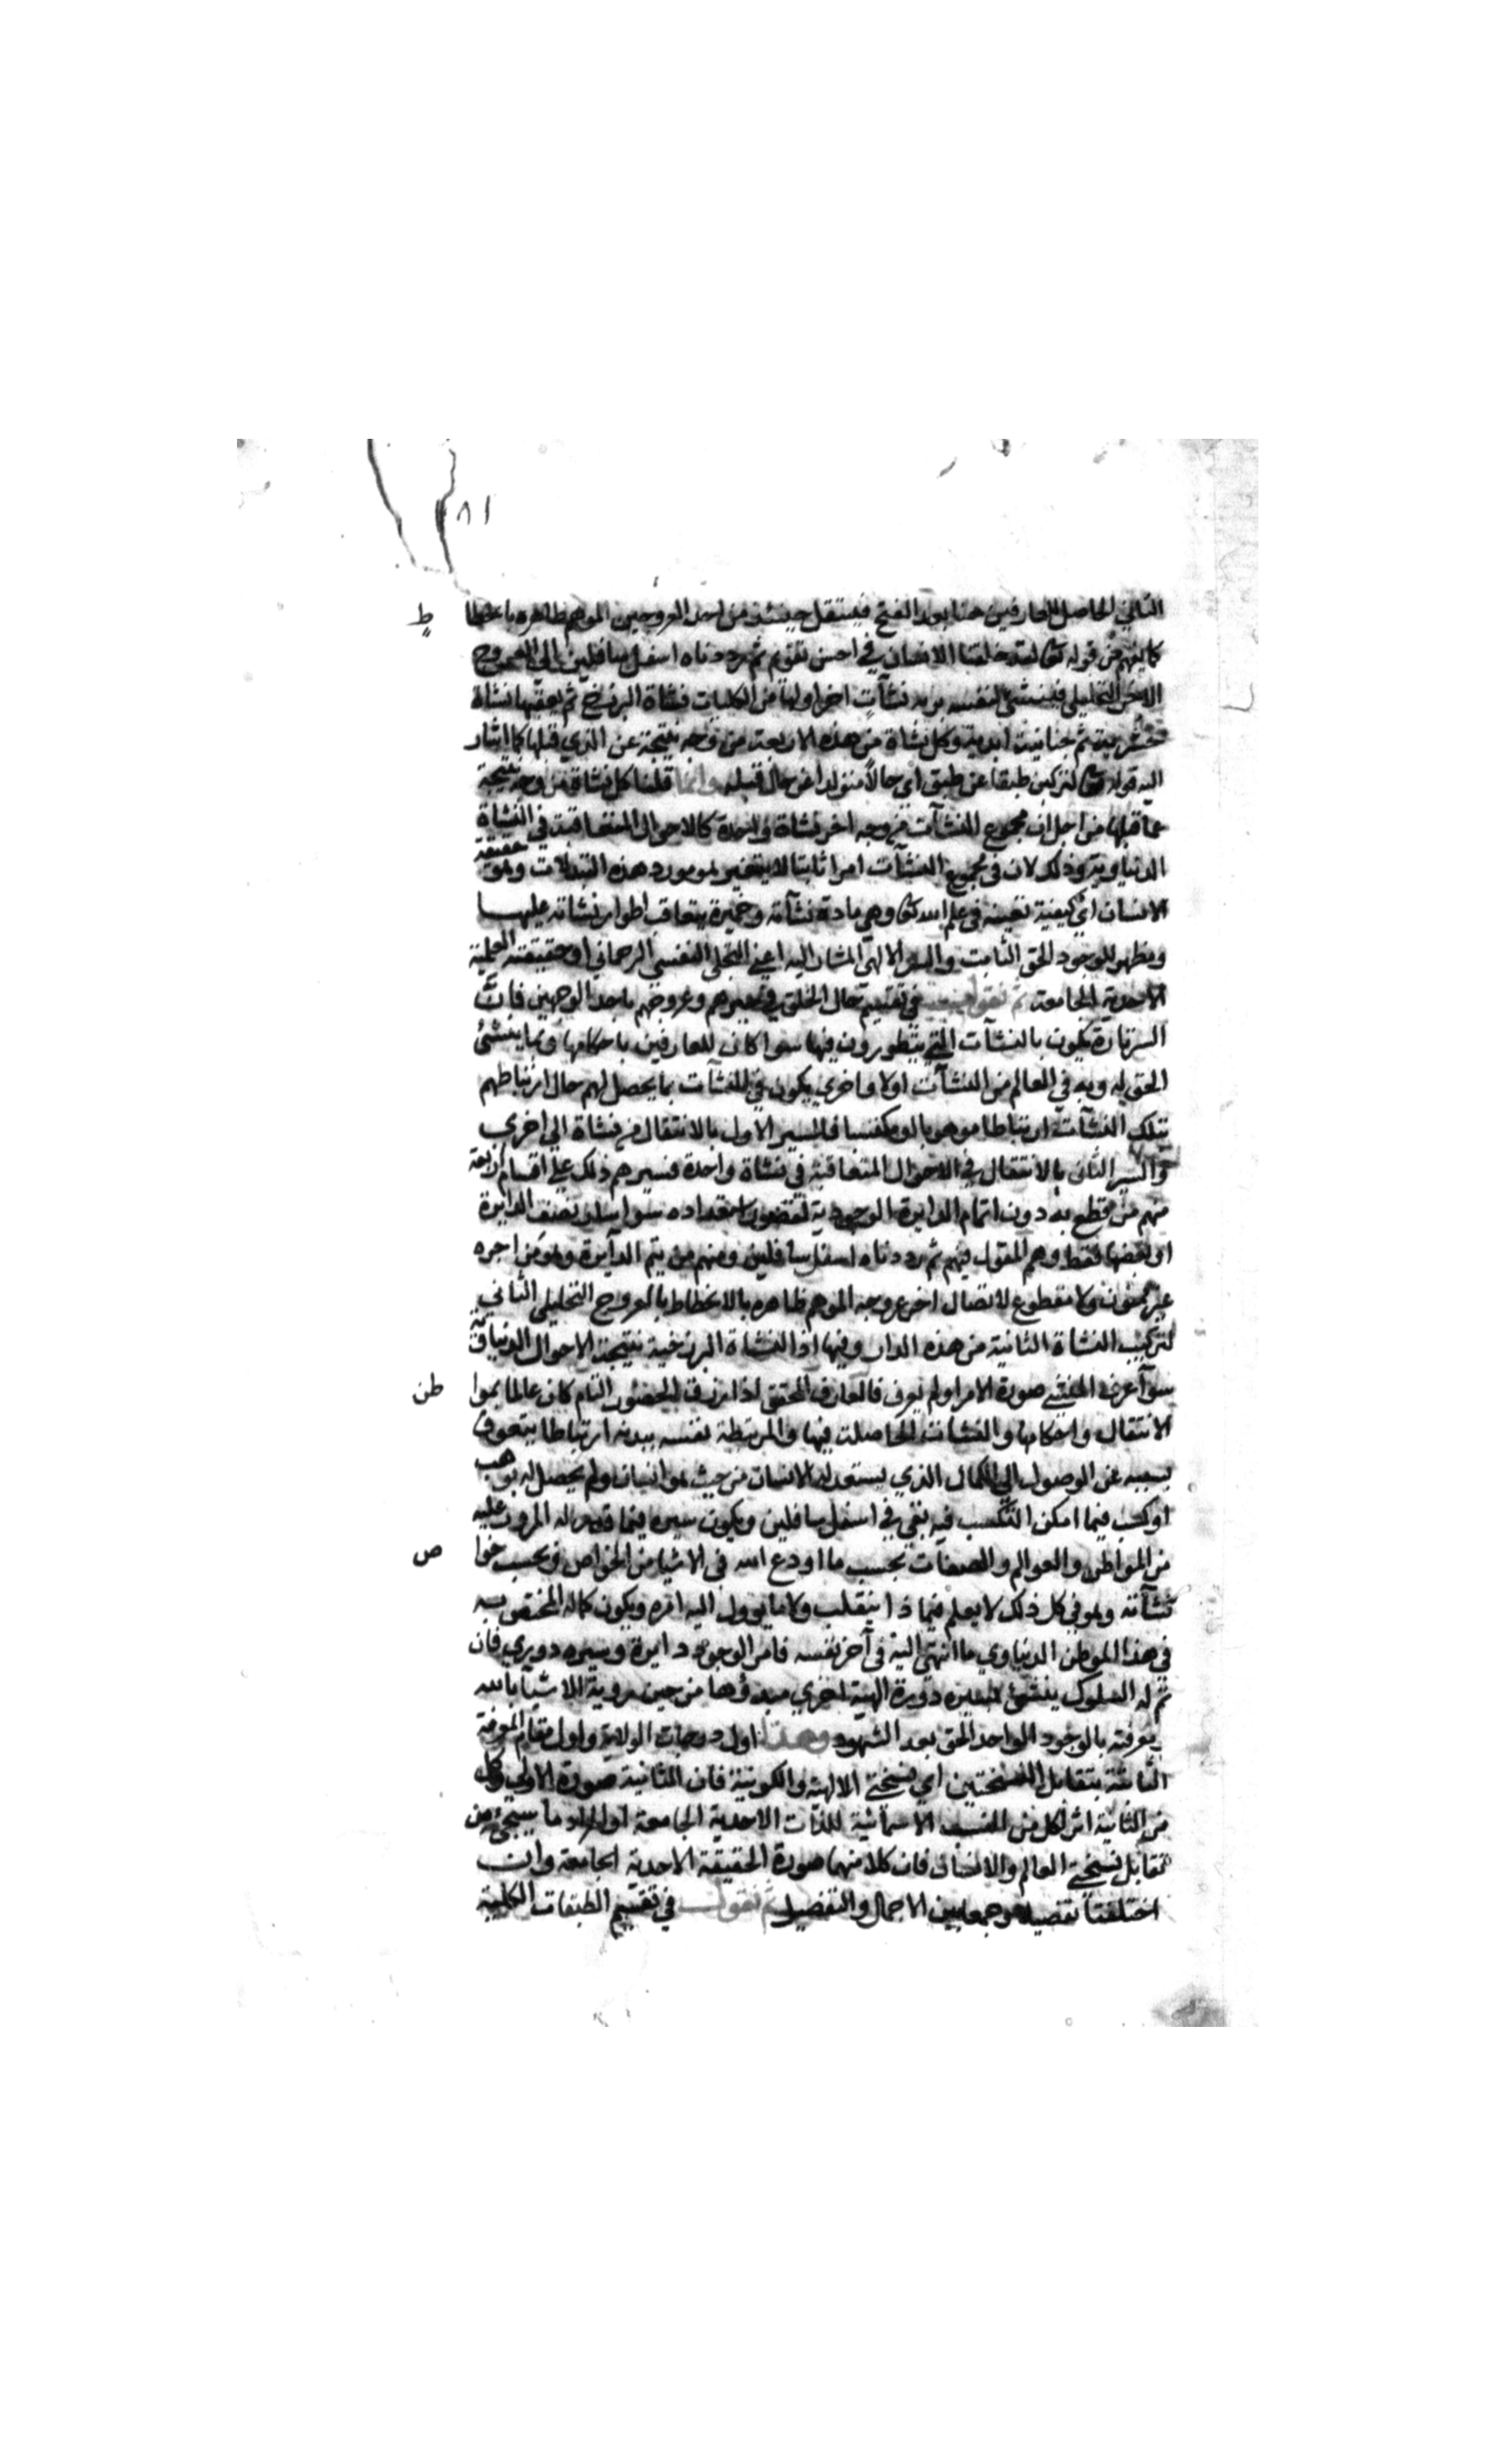 ٨١
الثاني الحاصل للعارفين هنا بعد الفتح فينتقل حينئذ من احد العروجين الموهم ظاهره بانحطا ط
كما يفهم من قوله تعا لقد خلقنا الانسان في احسن تقويم ثم رددناه اسفل سافلين الي العروج
الاخر التحليلي فينشئ لنفسه بربه نشآت اخر اولها من الكليات نشاة البرزخ ثم يعقبها نشاة
حشرية ثم جنانية ابدية وكل نشاة من هذه الاربعة من وجه نتيجة عن الذي قبلها كما اشار
اليه قوله تعا لتركبن طبقا عن طبق اي حالا متولدا عن حال قبله وانما قلنا كل نشاة من وجه نتيجة
عما قبلها من اجل ان مجموع النشآت من وجه اخر نشاة واحدة كالاحوال المتعاقبة في النشاة
الدنياوية وذلك لان في مجموع النشآت امرا ثابتا لا يتغير هو مورد هذه التبدلات وهو حقيقة
الانسان اي كيفية تعينه في علم الله تعا وهي مادة نشآته وخميرة يتعاقب اطوار نشاته عليها
ومظهر للوجود الحق الثابت والسر الالهي المشار اليه اعني التجلي النفسي الرحماني او حقيقته العلمية
الاحدية الجامعة ثم نقول في تقسيم حال الخلق في سيرهم وعروجهم باحد الوجهين فان
السر تارة يكون بالنشآت التي يتطورون فيها سوا كان للعارفين باحكامها وبما ينشئ
الحق له وبه في العالم من النشآت اولا واخري يكون في النشآت بما يحصل لهم حال ارتباطهم
بتلك النشآت ارتباطا موهوبا او مكتسبا فالسير الاول بالانتقال من نشاة الي اخري
والسير الثاني بالانتقال في الاحوال المتعاقبة في نشاة واحدة فسيرهم ذلك علي اقسام اربعة
منهم من يقطع به دون اتمام الدايرة الوجودية لقصور استعداده سوا سار نصف الدايرة
او بعضها فقط وهم المقول فيهم ثم رددناه اسفل سافلين ومنهم من يتم الدآيرة وهو من اجره
غير ممنون ولا مقطوع لاتصال اخر عروجه الموهم ظاهره بالانحطاط بالعروج التحليلي الثاني
لتركيب النشاة الثانية من هذه الدار وفيها اذ النشاة البرزخية نتيجة الاحوال الدنياوية
سوآ عرف المنشئ صورة الامر او لم يعرف فالعارف المحقق اذا رزق الحضور التام كان عالما بموا طن
الانتقال واحكامها والنشات الحاصلة فيها والمرتبطة نفسه ببدنه ارتباطا يتعوق
بسببه عن الوصول الي الكمال الذي يستعد له الانسان من حيث هو انسان ولم يحصل له بوهب
او كسب فيما امكن التكسب فيه بقي في اسفل سافلين ويكون سيره فيما قدر له المرور عليه
من المواطن والعوالم والصفات بحسب ما اودع الله في الاشيا من الخواص وبحسب خوا ص
نشآته وهو في كل ذلك لا يعلم فيما ذا ينقلب ولا ما يوول اليه امره ويكون كماله المختص به
في هذا الموطن الدنياوي ما انتهي اليه في آخر نفسه فامر الوجود دايرة وسيره دوري فان
تم له السلوك ينشئ لسيره دورة الهية اخري مبدؤها من حين روية الاشيآ بالله
بمعرفته بالوجود الواحد الحق بعد الشهود وهذا اول درجات الولاية واول مقام المعرفة
الناشئة بتقابل النسختين اي نسختي الالهية والكونية فان الثانية صورة الاولي وكل
من الثانية اثر لكل من النسب الاسمائية للذات الاحدية الجامعة او المراد ما سيجئ من
تقابل نسختي العالم والانسان فان كلا منهما صورة الحقيقة الاحدية الجامعة وان
اختلفتا تفصيلا وجمعا بين الاجمال والتفصيل ثم نقول في تقسيم الطبقات الكلية